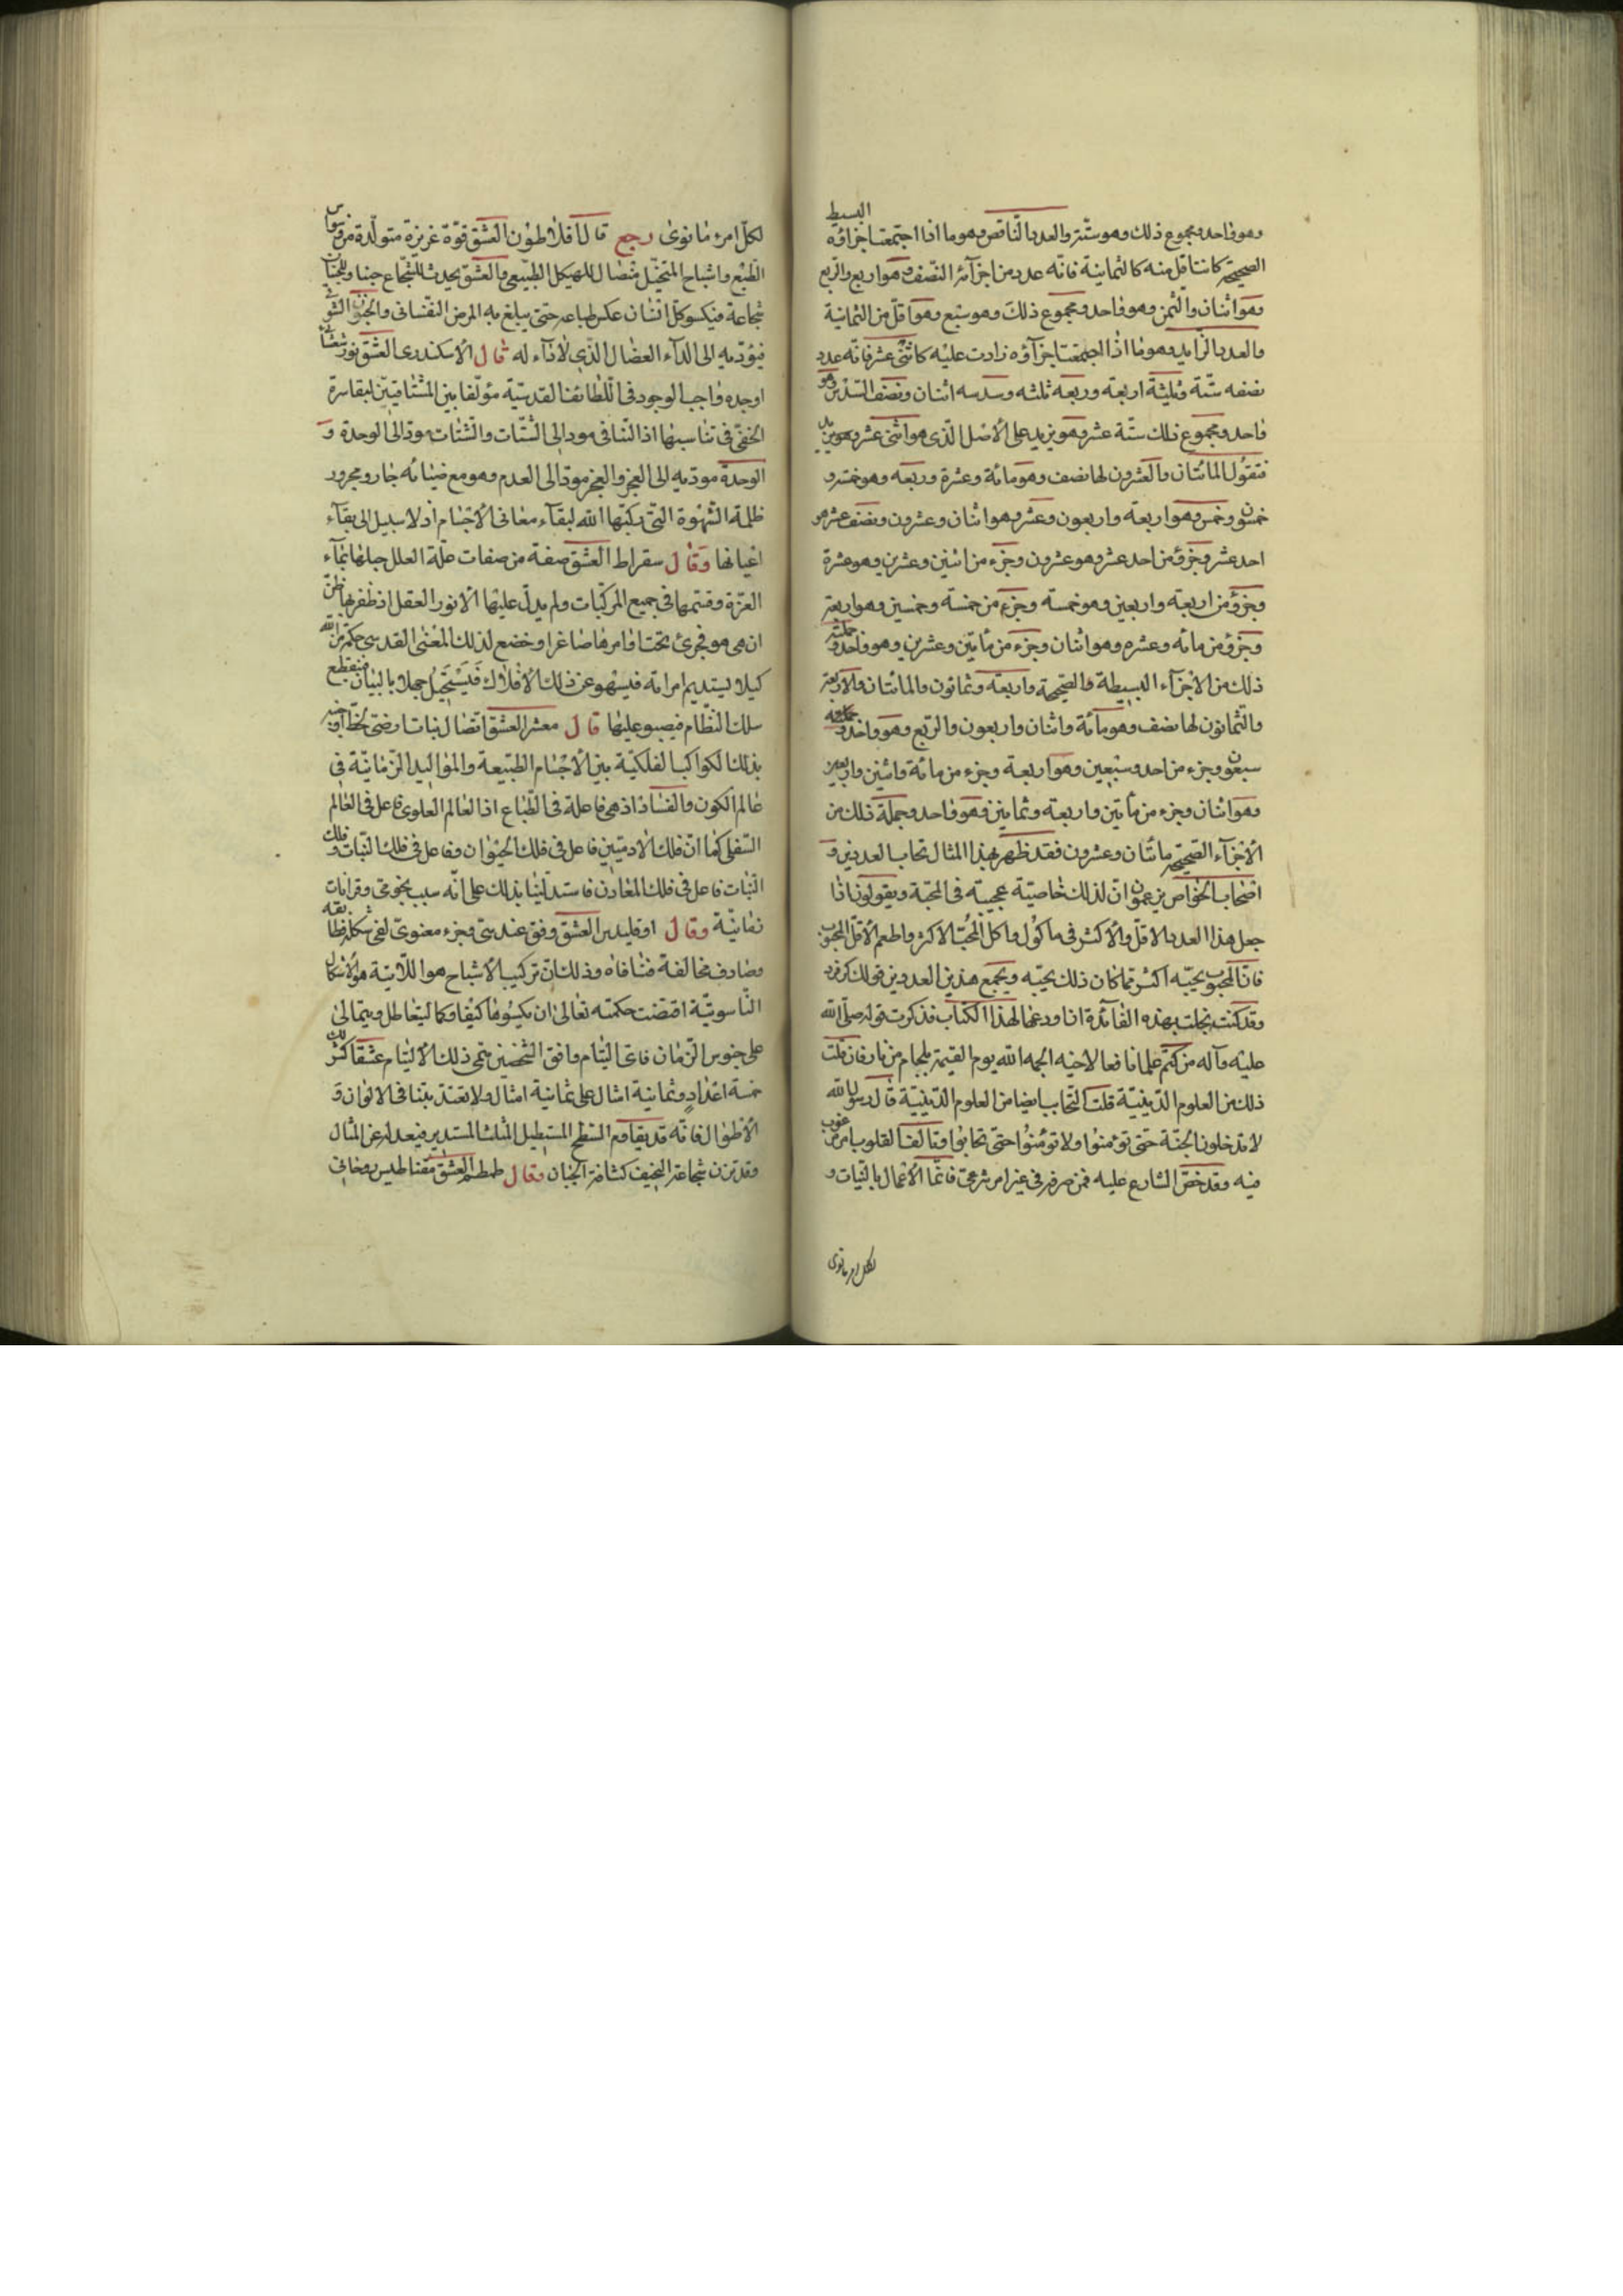 وهو واحد ومجموع ذلك وهو ستة والعدد الناقص وهو ما اذا اجتمعت اجزاؤه البسيط
الصحيحة كانت اقل منه كالثمانية فانه عدد من اجزآئه النصف وهو اربع والربع
وهو اثنان والثمن وهو واحد ومجموع ذلك وهو سبع وهو اقل من الثمانية
والعدد الزايد وهو ما اذا اجتمعت اجزآؤه زادت عليه كاثنى عشر فانه عدد
نصفه ستة وثلثه اربعة وربعه ثلثه وسدسه اثنان ونصف السدس وهو
واحد ومجموع ذلك ستة عشر وهو يزيد على الاصل الذى هو اثنى عشر
فنقول المائتان والعشرون لها نصف وهو مائة وعشرة وربعه وهو خمسة و
خمسون وخمس وهو اربعة واربعون وعشر وهو اثنان وعشرون ونصف عشر وهو
احد عشر وجزؤ من احد عشر وهو عشرون وجزء من اثنين وعشرين وهو عشرة
وجزؤ من اربعة واربعين وهو خمسة وجزء من خمسة وخمسين وهو اربعة
وجزؤ من مائه وعشره وهو اثنان وجزء من مأتين وعشرين وهو واحد وجملة
ذلك من الاجزآء البسيطة والصحيحة واربعة وثمانون والمائتان والاربعة
والثمانون لها نصف وهو مائة واثنان واربعون والربع وهو واحد و
سبعون وجزء من احد وسبعين وهو اربعة وجزء من مائة واثنين واربعين
وهو اثنان وجزء من مأتين واربعة وثمانين وهو واحد وجملة ذلك من
الاجزآء الصحيحة مائتان وعشرون فقد ظهر بهذا المثال تحاب العددين و
اصحاب الخواص يزعمون ان لذلك خاصية عجيبة فى المحبة ويقولون اذا
جعل هذا العدد الاقل والاكثر فى ماكول واكل المحب الاكثر واطعم الاقل المحبوب
فان المحبوب يحبه اكثر مما كان ذلك يحبه ويجمع هذين العددين قولك
وقد كنت بخلت بهذه الفائدة ان اودعها لهذا الكتاب فذكرت قوله صلى الله
عليه وآله من كتم علما نافعا لاخيه الجمه الله يوم القيمة بلجام من نار فان قلت
ذلك من العلوم الدينية قلت التحاب ايضا من العلوم الدينية قال رسول الله
لا تدخلون الجنة حتى تؤمنوا ولا تؤمنوا حتى تحابوا وتالف القلوب امر مرغوب
فيه وقد خص الشارع عليه فمن صرفه فى غير امر شرعى فانما الاعمال بالنيات و
لكل امرء ما نوى
لكل امرء ما نوى رجع قال افلاطون العشق قوة غريزة متولدة من وسواس
الطبع واشباح المتخيل متصال للهيكل الطبيعى والعشق يحدث للشجاع جبنا وللجبان
شجاعة فيكسو كل انسان عكس طباعه حتى يبلغ به المرض النفسانى والجنون الشوقى
فيؤديه الى الدآء العضال الذى لا دآء له قال الاسكندرى العشق نور شعشانى
اوجده واجب الوجود فى اللطائف القدسية مؤلفا بين المشتاقين لبقا سره
الخفى فى تناسبها اذ التنافى مود الى الشتات والشتات مود الى الوحدة و
الوحدة مودية الى العجز والعجز مود الى العدم وهو مع ضيائه جار ومجرور
ظلمة الشهوة التى ركبها الله لبقآء معانى الاجسام اذ لا سبيل الى بقآء
اعيانها وقال سقراط العشق صفة من صفات علة العلل جبلها بمآء
العزة وقسمها فى جميع المركبات ولم يدل عليها الا نور العقل اذ ظفر بها ظن
ان هى هو فجرى تحت اوامرها صاغرا وخضع لذلك المعنى القدسى حكمة من الله
كيلا يستديم امراته فيسهو عن ذلك الافلاك فيستحيل جملا بالبيان فينقطع
سلك النظام فيصبو عليها قال معشر العشق اتصال
بذلك الكواكب الفلكية بين الاجسام الطبيعة والمواليد الزمانية فى
عالم الكون والفساد اذ هى فاعلة فى الطباع اذ العالم العلوى فاعل فى العالم
السفلى كما ان فلك الادميين فاعل فى فلك الحيوان وفاعل فى فلك النبات وفلك
النبات فاعل فى فلك المعادن فاستدللنا بذلك على انه سبب نجومى وقرانات
نفانية وقال اوقليدس العشق وفق عندسى وجزء معنوى لفى شكله فطابقه
وصادف مخالفة فنافاه وذلك ان تركيب الاشباح هو اللاتية هو الاشكال
الناسوتية اقتضت حكمته تعالى ان يكسوها كيفا وكما ليتعاطل ويتمالى
على جنوس الزمان فاى اليتام وافق الشخصين سمى ذلك الاليتام عشقا كثر لك
خمسة اعداد وثمانية امثال على ثمانية امثال ولا تعتد بتنافى الالوان و
الاطوال فانه قد يقاوم السطح المستطيل المثلث المستدير فيعدله عن المثال
وقد تزن شجاعة النحيف كثافة الجبان وقال طمطم العشق مقناطيس روحانى